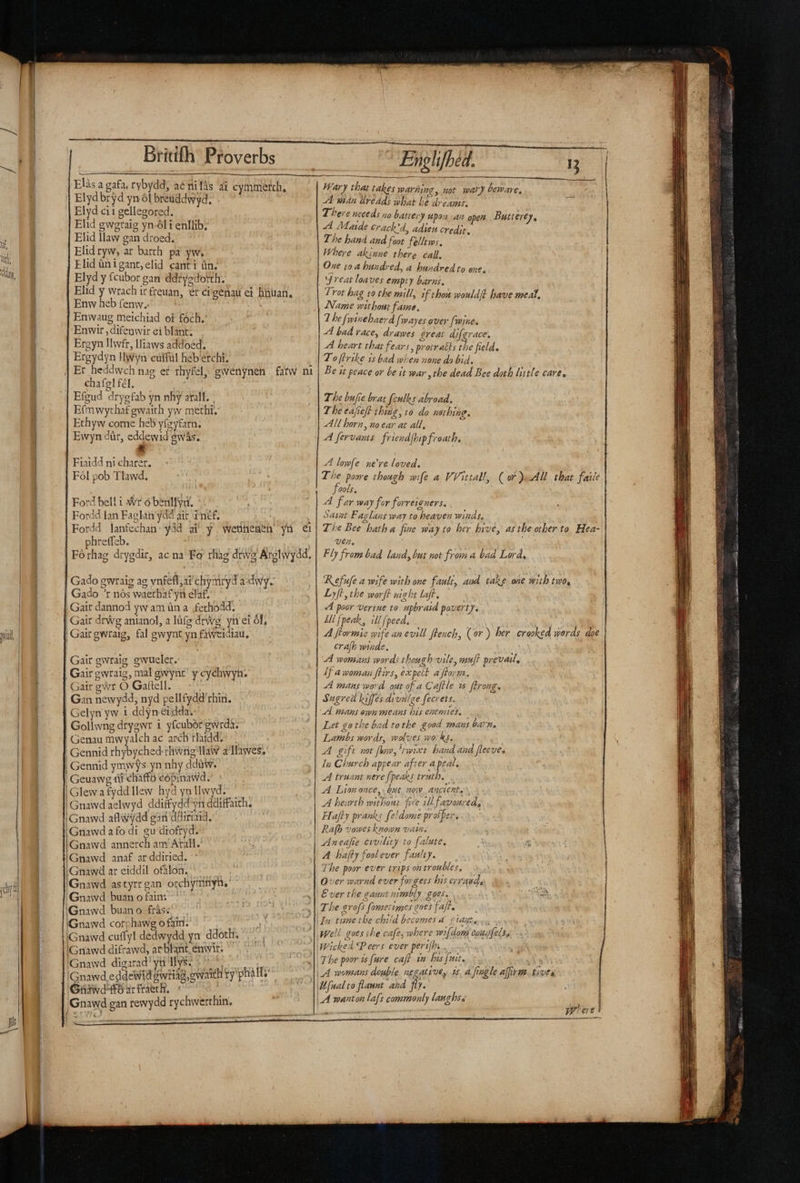 British Proverbs
Elàs a gafa, rybydd, ac ni làs ai cymmerth,
Elyd brŷd yn ôl breuddwyd.
Elyd ci i gellegored.
Elid gwgraig yn ôl i enllib.
Elid llaw gan droed.
Elid ryw, ar barth pa yw.
Elid ùn i gant, elid cant i ùn.
Elyd y scubor gan ddrygdorth.
Elid y wrach ir freuan, er ci genau ei hunan.
Enw heb senw.
Enwaug meichiad oi fôch.
Enwir, difenwir ei blant.
Ergyn llwfr, lliaws addoed.
Ergydyn llwyn cussul heb erchi.
Er heddwch nag er rhyfel, gwenynen farw ni
chasgl fêl.
Esgud drygfab yn nhy arall.
Esmwythaf gwaith yw methi.
Ethyw corne heb ysgyfarn.
Ewyn dùr, eddewid gwâs.
Fiaidd ni charer.
Fôl pob Tlawd.
Fordd bell i Ŵr o benllyn.
Fordd lan Faglan ydd air i nêf.
Fordd Ianfechan ydd ai y wennenen yn ei
phreffeb.
Fo rhag drygdir, ac na Fo rhag drwg Arglwydd.
Gado gwraig ag ynfest, ai chymryd a dwy.
Gado 'r nòs waethaf yn olaf.
Gair dannod yw am ùn a ferhodd.
Gair drŵg anianol, a lùsg drŵg yn ei ôl,
Gair gwraig, fal gwynt yn faweidiau,
Gair gwraig gwneler.
Gair gwraig, mal gwynt y cychwyn.
Gair gwr O Gastell.
Gan newydd, nyd pellfydd rhin.
Gelyn yw i ddŷn ei dda.
Gollwng drygwr i yscubor gwrda.
Genau mwyalch ac arch blaidd.
Gennid rhybyched rhwng llaw a llawes,
Gennid ymwŷs yn nhy dduw.
Geuawg ni chaffo copinawd.
Glew a fydd llew hyd yn llwyd.
Gnawd aelwyd ddiffydd yn ddiffaith.
Gnawd aflwydd gan ddiriaid.
Gnawd afo di gu diofryd.
Gnawd annerch am Arall.
Gnawd anaf ar ddiried.
Gnawd ar eiddil ofalon.
Gnawd as tyrr gan orchymyn,
Gnawd buan o fain:
Gnawd buan o frâs.
Gnawd corrhawg o fain.
Gnawd cussyl dedwydd yn ddoth.
Gnawd difrawd, ar blant enwir.
Gnawd digarad yn llys.
Gnawd eddewid gwriag, gwaith ty phally
Gnawd ffo ar fraeth,
Gnawd gan rewydd rychwerthin.
Englished. 13
Wary that takes warning, not wary beware.
A man dreads what he dreams.
There needs no battery upon an open Butterey.
A Maide crack'd, adieu credit.
The hand and foot fellows.
Where akinne there call.
One to a hundred, a hundred to one.
Great loaves empty barns.
Trot hag to the mill, if thou wouldst have meal.
Name without fame.
The swineheard swayes over swine.
A bad race, drawes great disgrace.
A heart that fears, protracts the field.
To strike is bad when none do bid.
Be it peace or be it war, the dead Bee doth little care.
The busie brat sculks abroad.
The easiest thing, to do nothing.
All horn, no ear at all.
A servants friendship froath.
A lowse ne're loved.
The poore though wise a VVittall, (or) All that faile
fools.
A far way for forreigners.
Saint Faglans way to heaven winds.
The Bee hath a fine way to her hive, as the other to Hea-
ven.
Fly from bad land, but not from a bad Lord.
Refuse a wife with one fault, and take one with two,
Lyst, the worst night last.
A poor vertue to upbraid poverty.
Ill speak, ill speed.
A stormie wife an evill stench, (or) her crooked words doe
crash winde.
A womans words though vile, must prevail.
If a woman stirs, expect a storm.
A mans word out of a Castle is strong.
Sugred kisses divulge secrets.
A mans own means his enemies.
Let go the bad to the good mans barn.
Lambs words, wolves works.
A gift not slow, 'twixt hand and sleeve.
In Church appear after apeal.
A truant nere speaks truth.
A Lion once, but now ancient.
A hearth without fire ill favoured.
Hasty pranks seldome prosper.
Rash vowes known vain.
An easie civility to salute.
A hasty fool ever faulty.
The poor ever trips on troubles.
Over warnd ever forgets his errand.
Ever the gaunt nimbly goes.
The gross sometimes goes fast.
In time the child becomes a giant.
Well goes the case, where wisdom counsels.
Wicked Peers ever perish.
The poor is sure cast in his suit.
A womans double negative, is a single affirmative
Usual to flaunt and fly.
A wanton lass commonly laughs.
Where